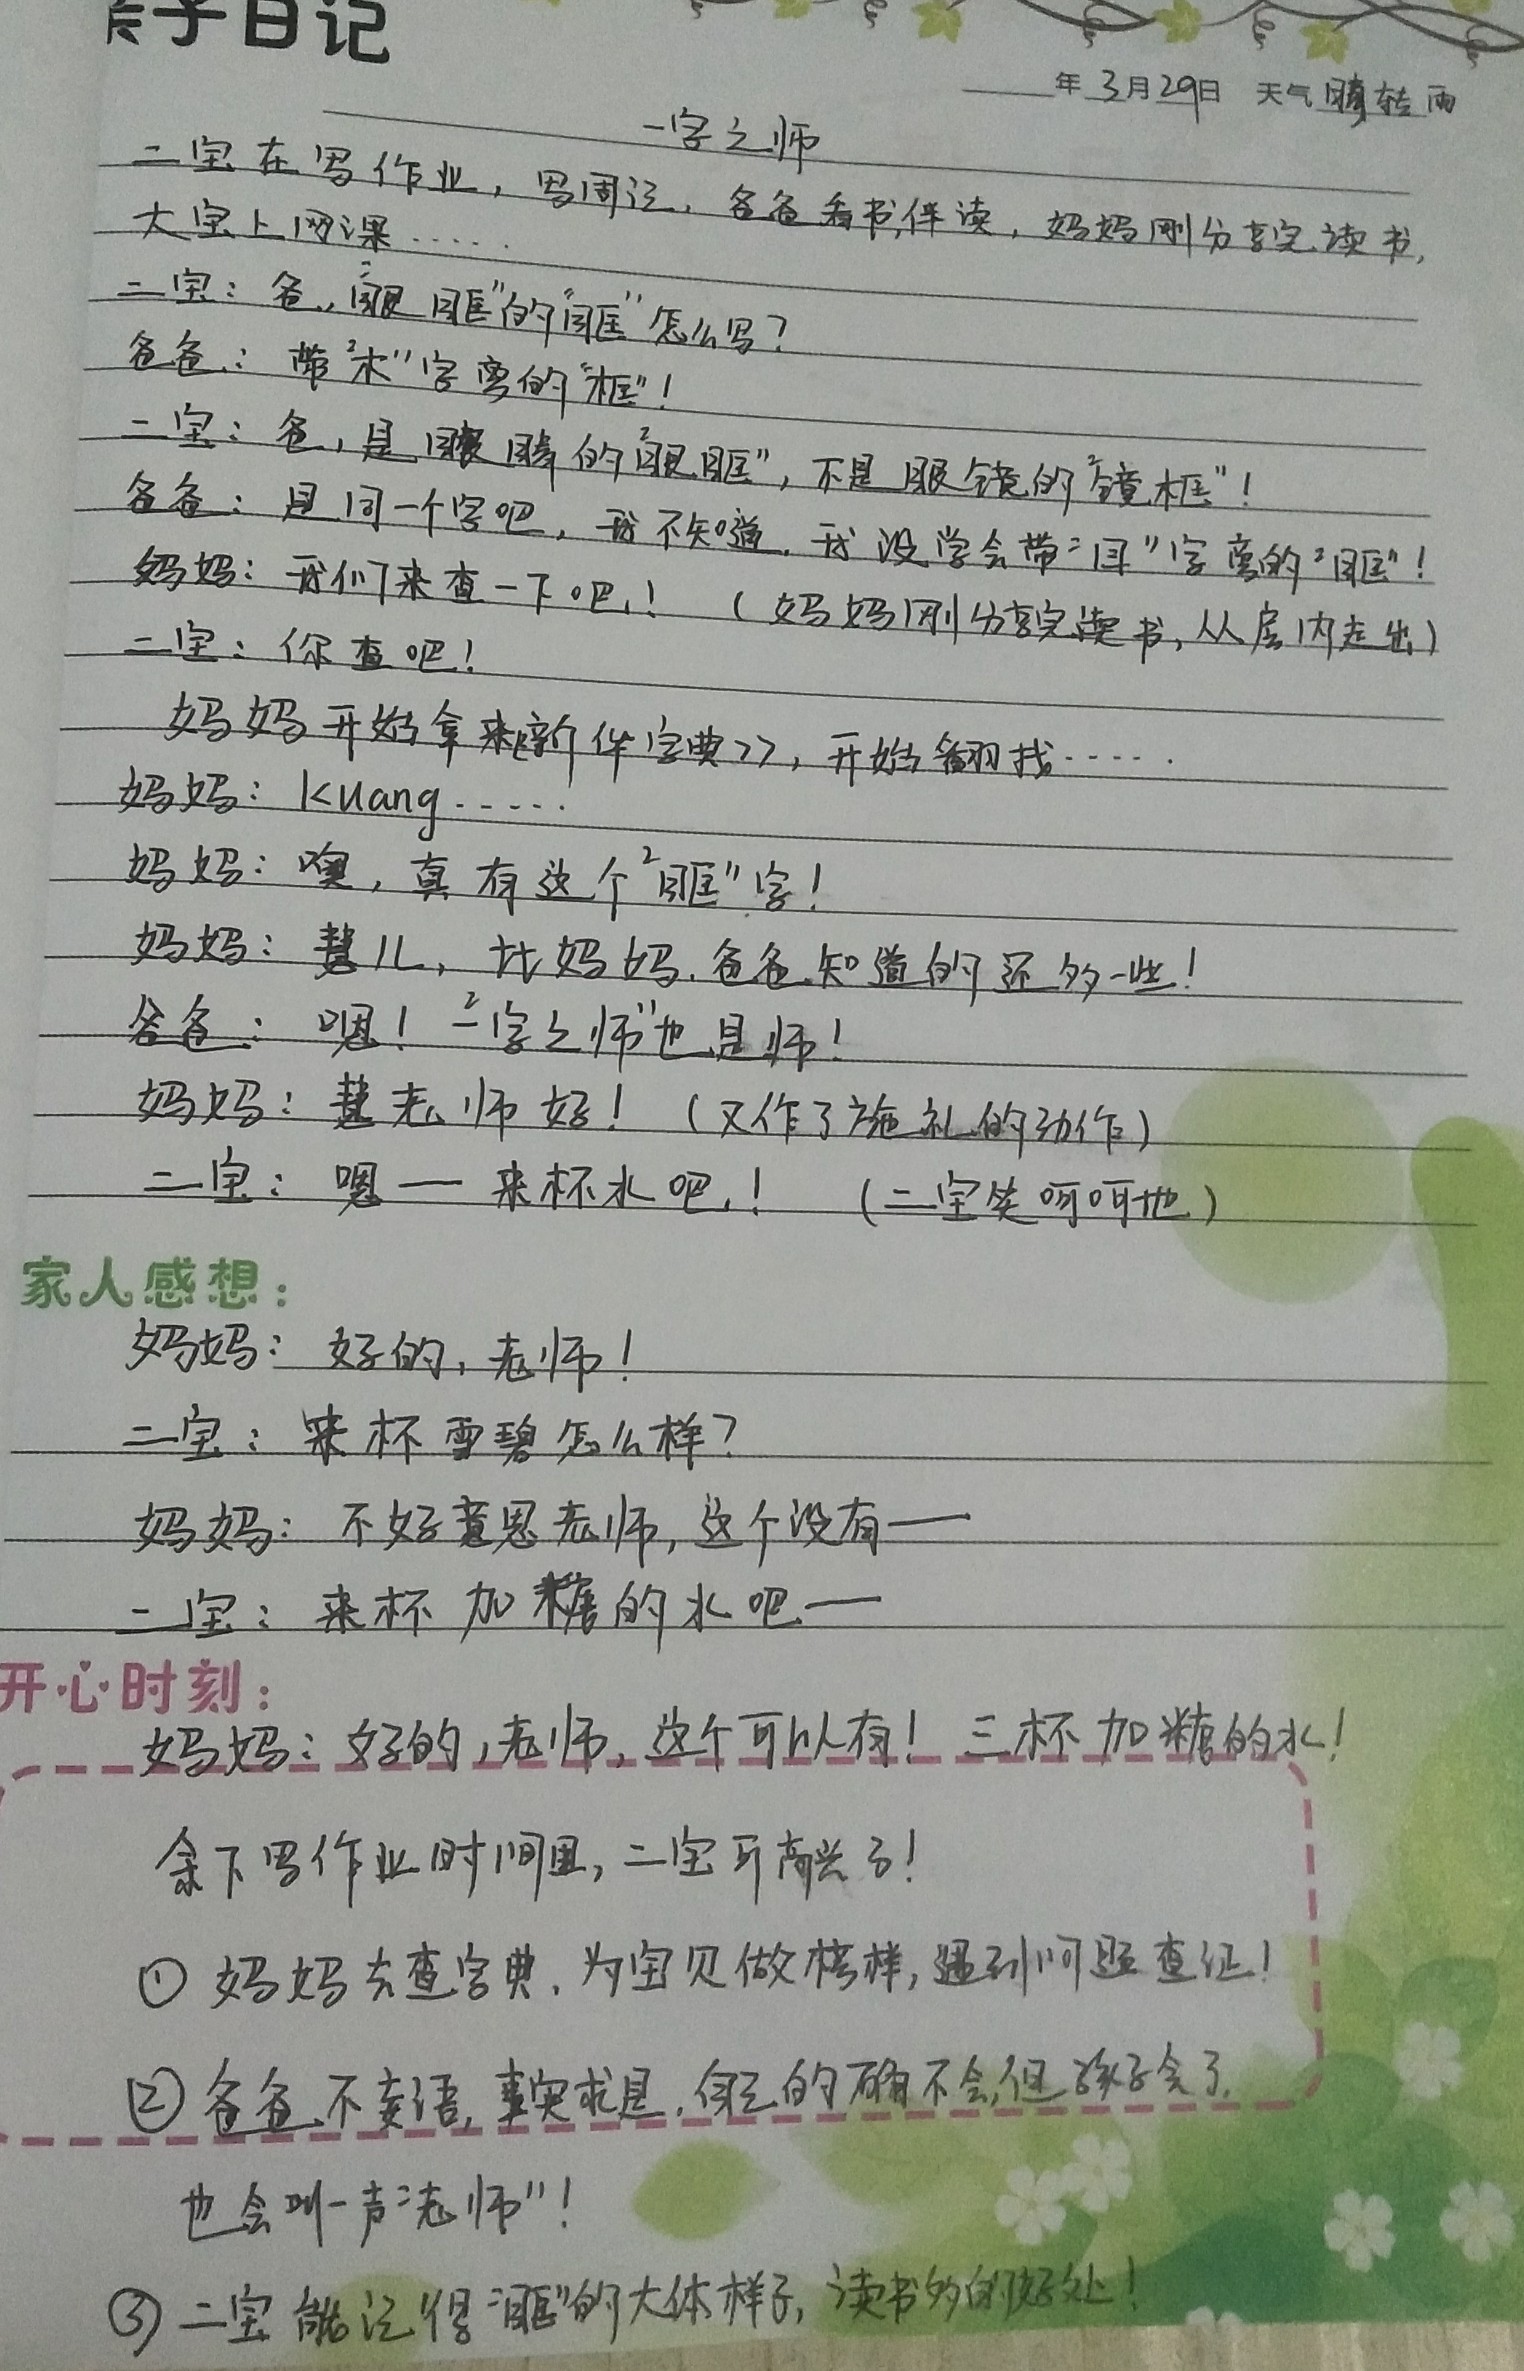 亲子日记
年3月29日 天气晴转雨
一字之师
二宝在写作业，写周记，爸爸看书伴读，妈妈刚分享完读书，
大宝上网课……
二宝：爸，“眼眶”的“眶”怎么写？
爸爸：带“木”字旁的“框”！
二宝：爸，是眼睛的“眼眶”，不是眼镜的“镜框”！
爸爸：是同一个字吧，我不知道，我没学会带“目”字旁的“眶”！
妈妈：我们来查一下吧！（妈妈刚分享完读书，从房内走出）
二宝：你查吧！
妈妈开始拿来《新华字典》，开始翻找……
妈妈：kuang……
妈妈：噢，真有这个“眶”字！
妈妈：慧儿，比妈妈、爸爸知道的还多一些！
爸爸：嗯！“一字之师”也是师！
妈妈：慧老师好！（又作了施礼的动作）
二宝：嗯—来杯水吧！（二宝笑呵呵地）
家人感想：
妈妈：好的，老师！
二宝：来杯雪碧怎么样？
妈妈：不好意思老师，这个没有—
二宝：来杯加糖的水吧—
开心时刻：
妈妈：好的，老师，这个可以有！三杯加糖的水！
余下写作业时间里，二宝可高兴了！
①妈妈去查字典，为宝贝做榜样，遇到问题查证！
②爸爸不妄语，事实求是，自己的确不会，但孩子会了，
也会叫一声“老师”！
③二宝能记得“眶”的大体样子，读书多的好处！